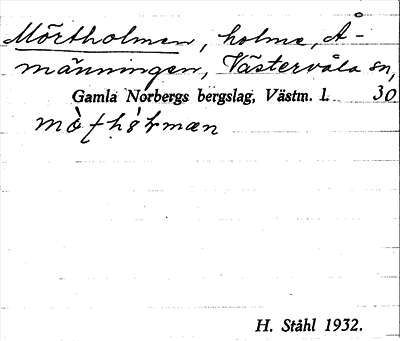 Mörtholmen, holme, Å-
männingen, Västervåla sn,
Gamla Norbergs bergslag, Västm. l. 30
H. Ståhl 1932.